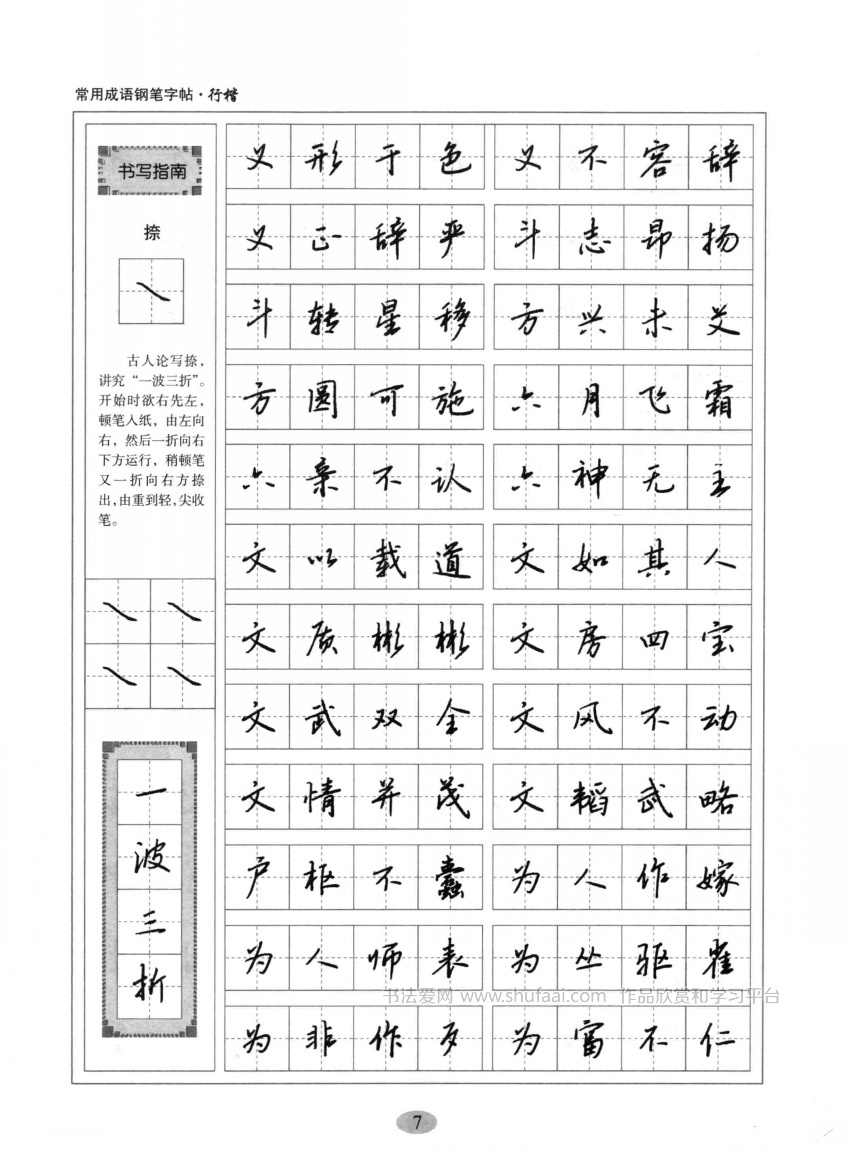 常用成语钢笔字帖·行楷
书写指南
捺
㇏
古人论写捺，
讲究“一波三折”。
开始时欲右先左，
顿笔入纸，由左向
右，然后一折向右
下方运行，稍顿笔
又一折向右方捺
出，由重到轻，尖收
笔。
㇏ ㇏
㇏ ㇏
一
波
三
折
义形于色 义不容辞
义正辞严 斗志昂扬
斗转星移 方兴未艾
方圆可施 六月飞霜
六亲不认 六神无主
文以载道 文如其人
文质彬彬 文房四宝
文武双全 文风不动
文情并茂 文韬武略
户枢不蠹 为人作嫁
为人师表 为丛驱雀
为非作歹 为富不仁
书法爱网 www.shufaai.com 作品欣赏和学习平台
7